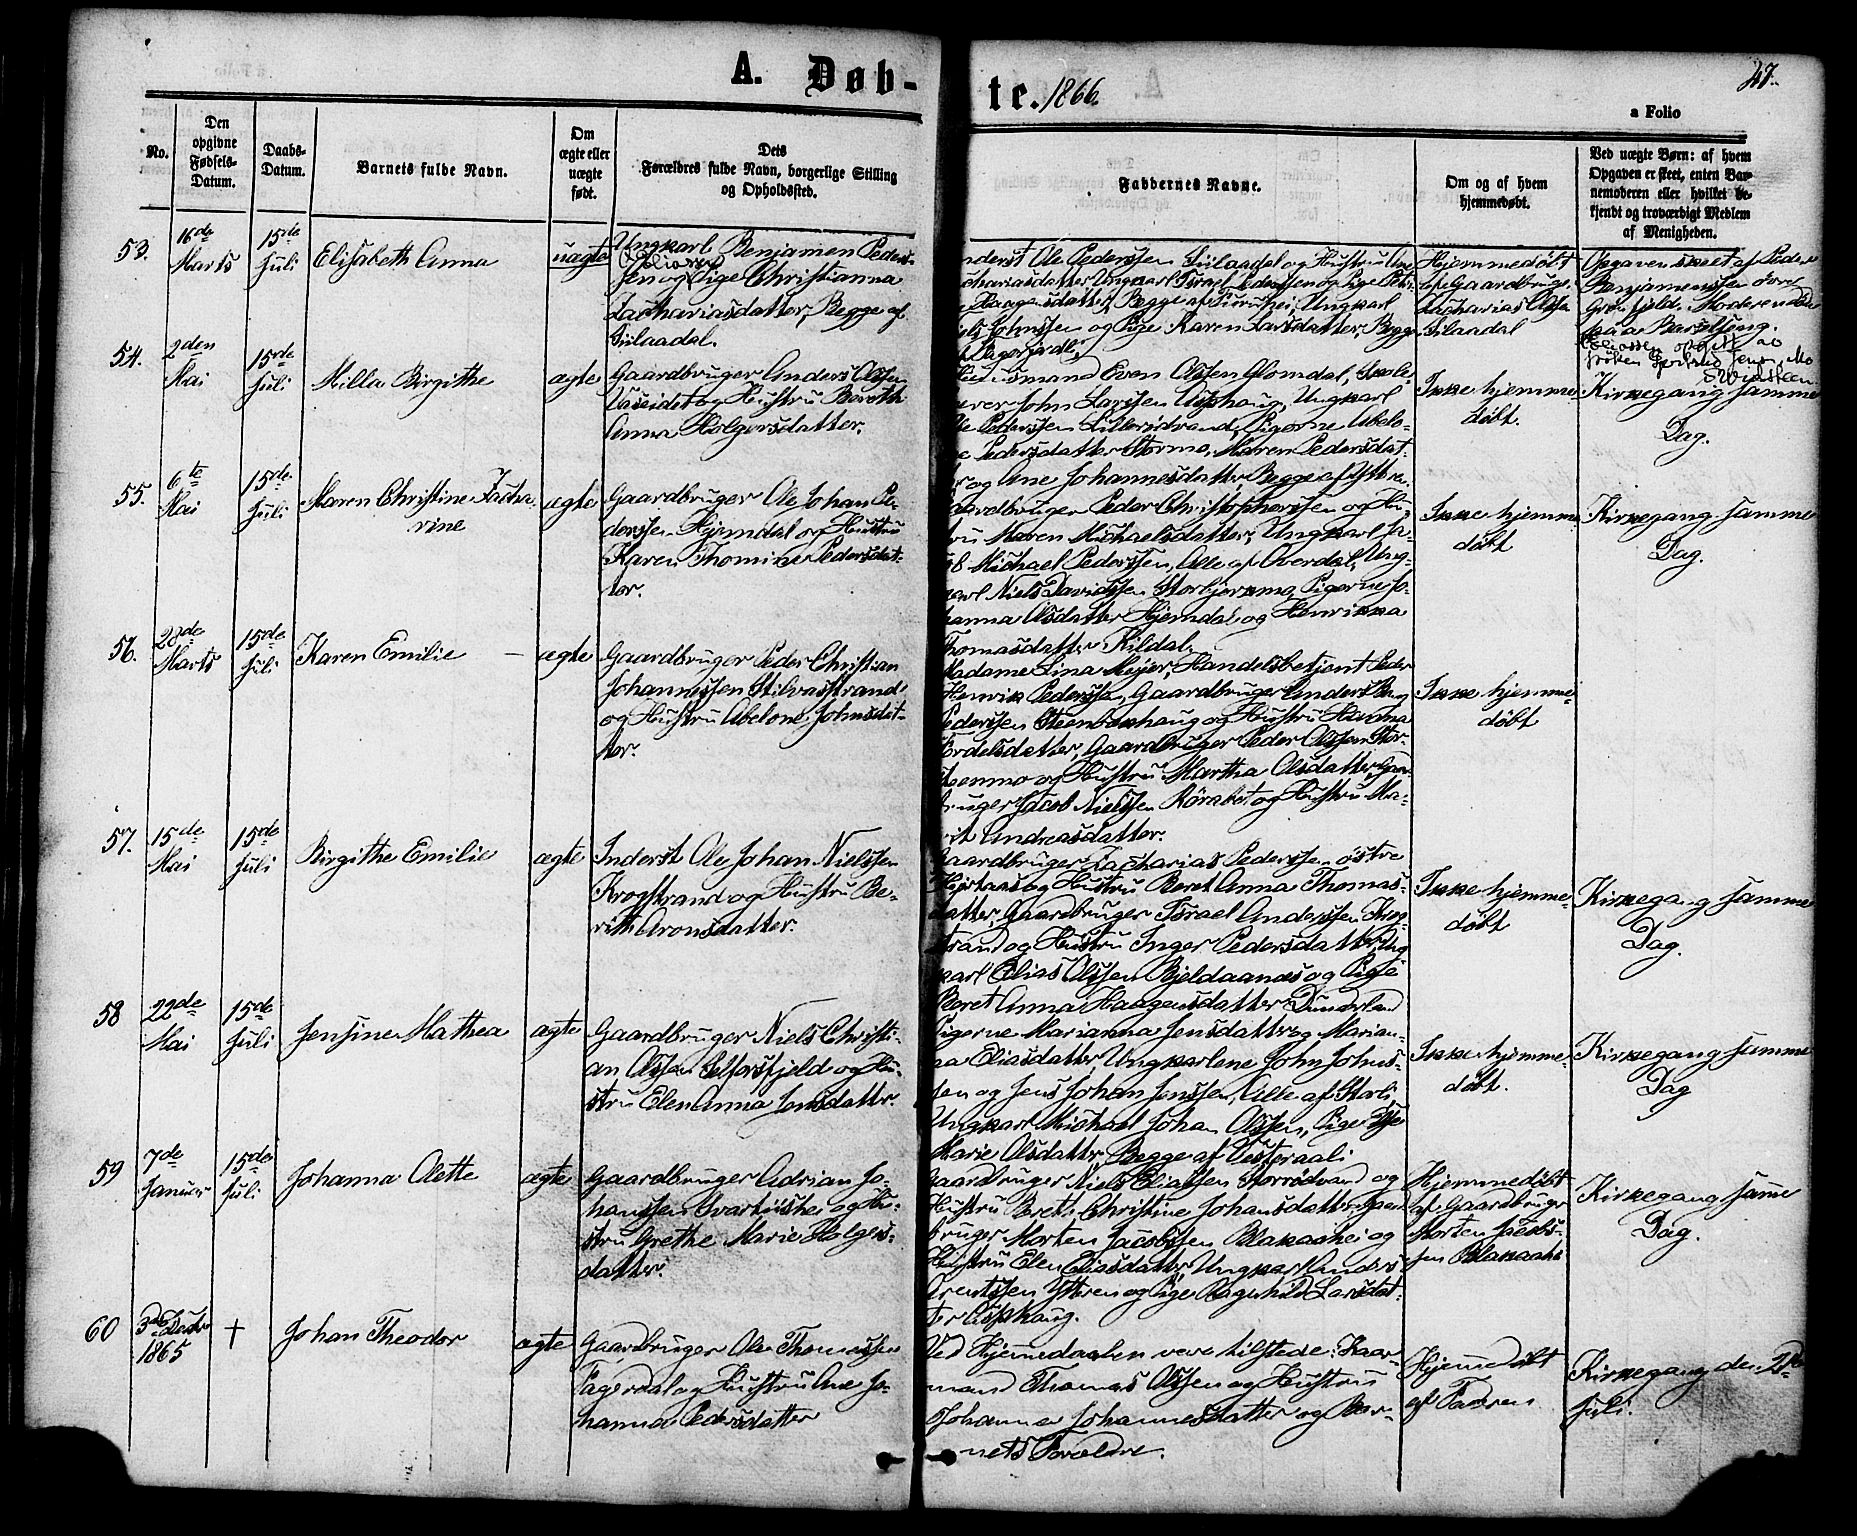 A. Døb-
te. 1866.
47.
a Folio
No.
Den
opgivne
Fødsels-
Datum.
Daabs-
Datum.
Barnets fulde Navn.
Om
ægte eller
uægte
født.
Dets
Forældres fulde Navn, borgerlige Stilling
og Opholdssted.
Faddernes Navne.
Om og af hvem
hjemmedøbt.
Ved uægte Børn: af hvem
Opgaven er skeet, enten Bar-
nemoderen eller hvilket be-
kjendt og troværdigt Medlem
af Menigheden.
53.
16de
Marts
15de
Juli
Elisabeth Anna
uægte
Ungkarl Benjamen Peders-
sen og Pige Christianna
Zachariasdatter, Begge af
Siilaadal.
nderst Ole Pederssen Siilaadal og Hustru
chariasdatter, Ungkarl Israel Pederssen og Pige
Haagensdatter, Begge af Ungkarl
Johnssen og Pige Karen Larsdatter, Begge
Hjemmedøbt
af Gaardbruger
Zacharias Olssen
Siilaadal
Opgaven skeet af Peder
Benjamenssen øvre
Grønfjeld. Moderen død
paa Barselseng.
54.
2den
Mai
15de
Juli
Milla Birgithe
ægte
Gaardbruger Anders Olssen
og Hustru Bereth
Anna Holgersdatter.
Huusmand Even Olssen Glomdal, Skole-
lærer John Larssen Asphaug, Ungkarl
Ole Pederssen Lillerødvand, Pigerne Abelo-
ne Pedersdatter Stormo, Maren Pedersdat-
ter og Ane Johannesdatter Begge af Ytteren
Ikke hjemme-
døbt.
Kirkegang samme
Dag.
55.
6te
Mai
15de
Juli
Maren Christine Zacha-
rine
ægte
Gaardbruger Ole Johan Pe-
derssen Hjemdal og Hustru
Karen Thomine Pedersdat-
ter.
Gaardbruger Peder Christopherssen og Hu-
stru Maren Michaelsdatter, Ungkarl Ja-
cob Michael Pederssen, Alle af Overdal, Ung-
karl Niels Davidssen Storbjerkmo, Pigerne Jo-
hanna Olsdatter Hjemdal og Henrikka
Thomasdatter Kildal.
Ikke hjemme
døbt
Kirkegang samme
Dag.
56.
28de
Marts
15de
Juli
Karen Emilie
ægte
Gaardbruger Peder Christian
Johannessen Stilvasstrand
og Hustru Abelone Johnsdat-
ter.
Madame Lina Meyer, Handelsbetjent Peder
Henrik Pederssen, Gaardbruger Anders Berg
Pederssen Steenbakhaug og Hustru Hanna
Kordelsdatter, Gaardbruger Peder Olssen Stor-
steenmo og Hustru Martha Olsdatter, Gaard-
bruger Jacob Nielssen Rørabet og Hustru Ma-
rit Andreasdatter.
Ikke hjemme-
døbt
57.
15de
Mai
15de
Juli
Birgithe Emilie
ægte
Inderst Ole Johan Nielssen
Krogstrand og Hustru Be-
rith Aronsdatter.
Gaardbruger Zacharias Pederssen østre
Hjertaas og Hustru Beret Anna Thomas-
datter, Gaardbruger Israel Anderssen Krog-
strand og Hustru Inger Pedersdatter, Ung-
karl Elias Olssen Bjeldaanæs og Pige
Beret Anna Haagensdatter Dunderland
Ikke hjemme-
døbt
Kirkegang samme
Dag.
58
22de
Mai
15de
Juli
Jensine Mathea
ægte
Gaardbruger Niels Christi-
an Olssen Selforsfjeld og Hu-
stru Elen Anna Jensdatter.
Pigerne Marianna Jensdatter og Marian-
na Eliasdatter, Ungkarlene John Johns-
sen og Jens Johan Jenssen, Alle af Storli,
Ungkarl Michael Johan Olssen, Pige
Marie Olsdatter, Begge af Vesteraali
Ikke hjemme-
døbt.
Kirkegang samme
Dag
59
7de
Januar
15de
Juli
Johanna Olette
ægte
Gaardbruger Adrian Jo-
hanssen Svartiishei og Hu-
stru Grethe Marie Holgers-
datter.
Gaardbruger Niels Eliassen Storrødvand og
Hustru Beret Christine Johansdatter, Gaard-
bruger Morten Jacobssen Blakaahei og
Hustru Elen Eliasdatter, Ungkarl Anders
Arentssen Ytteren og Pige Ragnhild Larsdat-
ter Asphaug.
Hjemmedøbt
af Gaardbruger
Morten Jacobs-
sen Blakaahei
Kirkegang samme
Dag.
60
3die Decbr
1865
+
Johan Theodor
ægte
Gaardbruger Ole Thomassen
Fagerdal og Hustru Ane Jo-
hanna Pedersdatter
Ved Hjemmedaaben vare tilstede: Kaar-
mand Thomas Olssen og Hustru
Johanna Johannesdatter og Bar-
nets Forældre.
Hjemmedøbt
af Faderen
Kirkegang den
Juli.